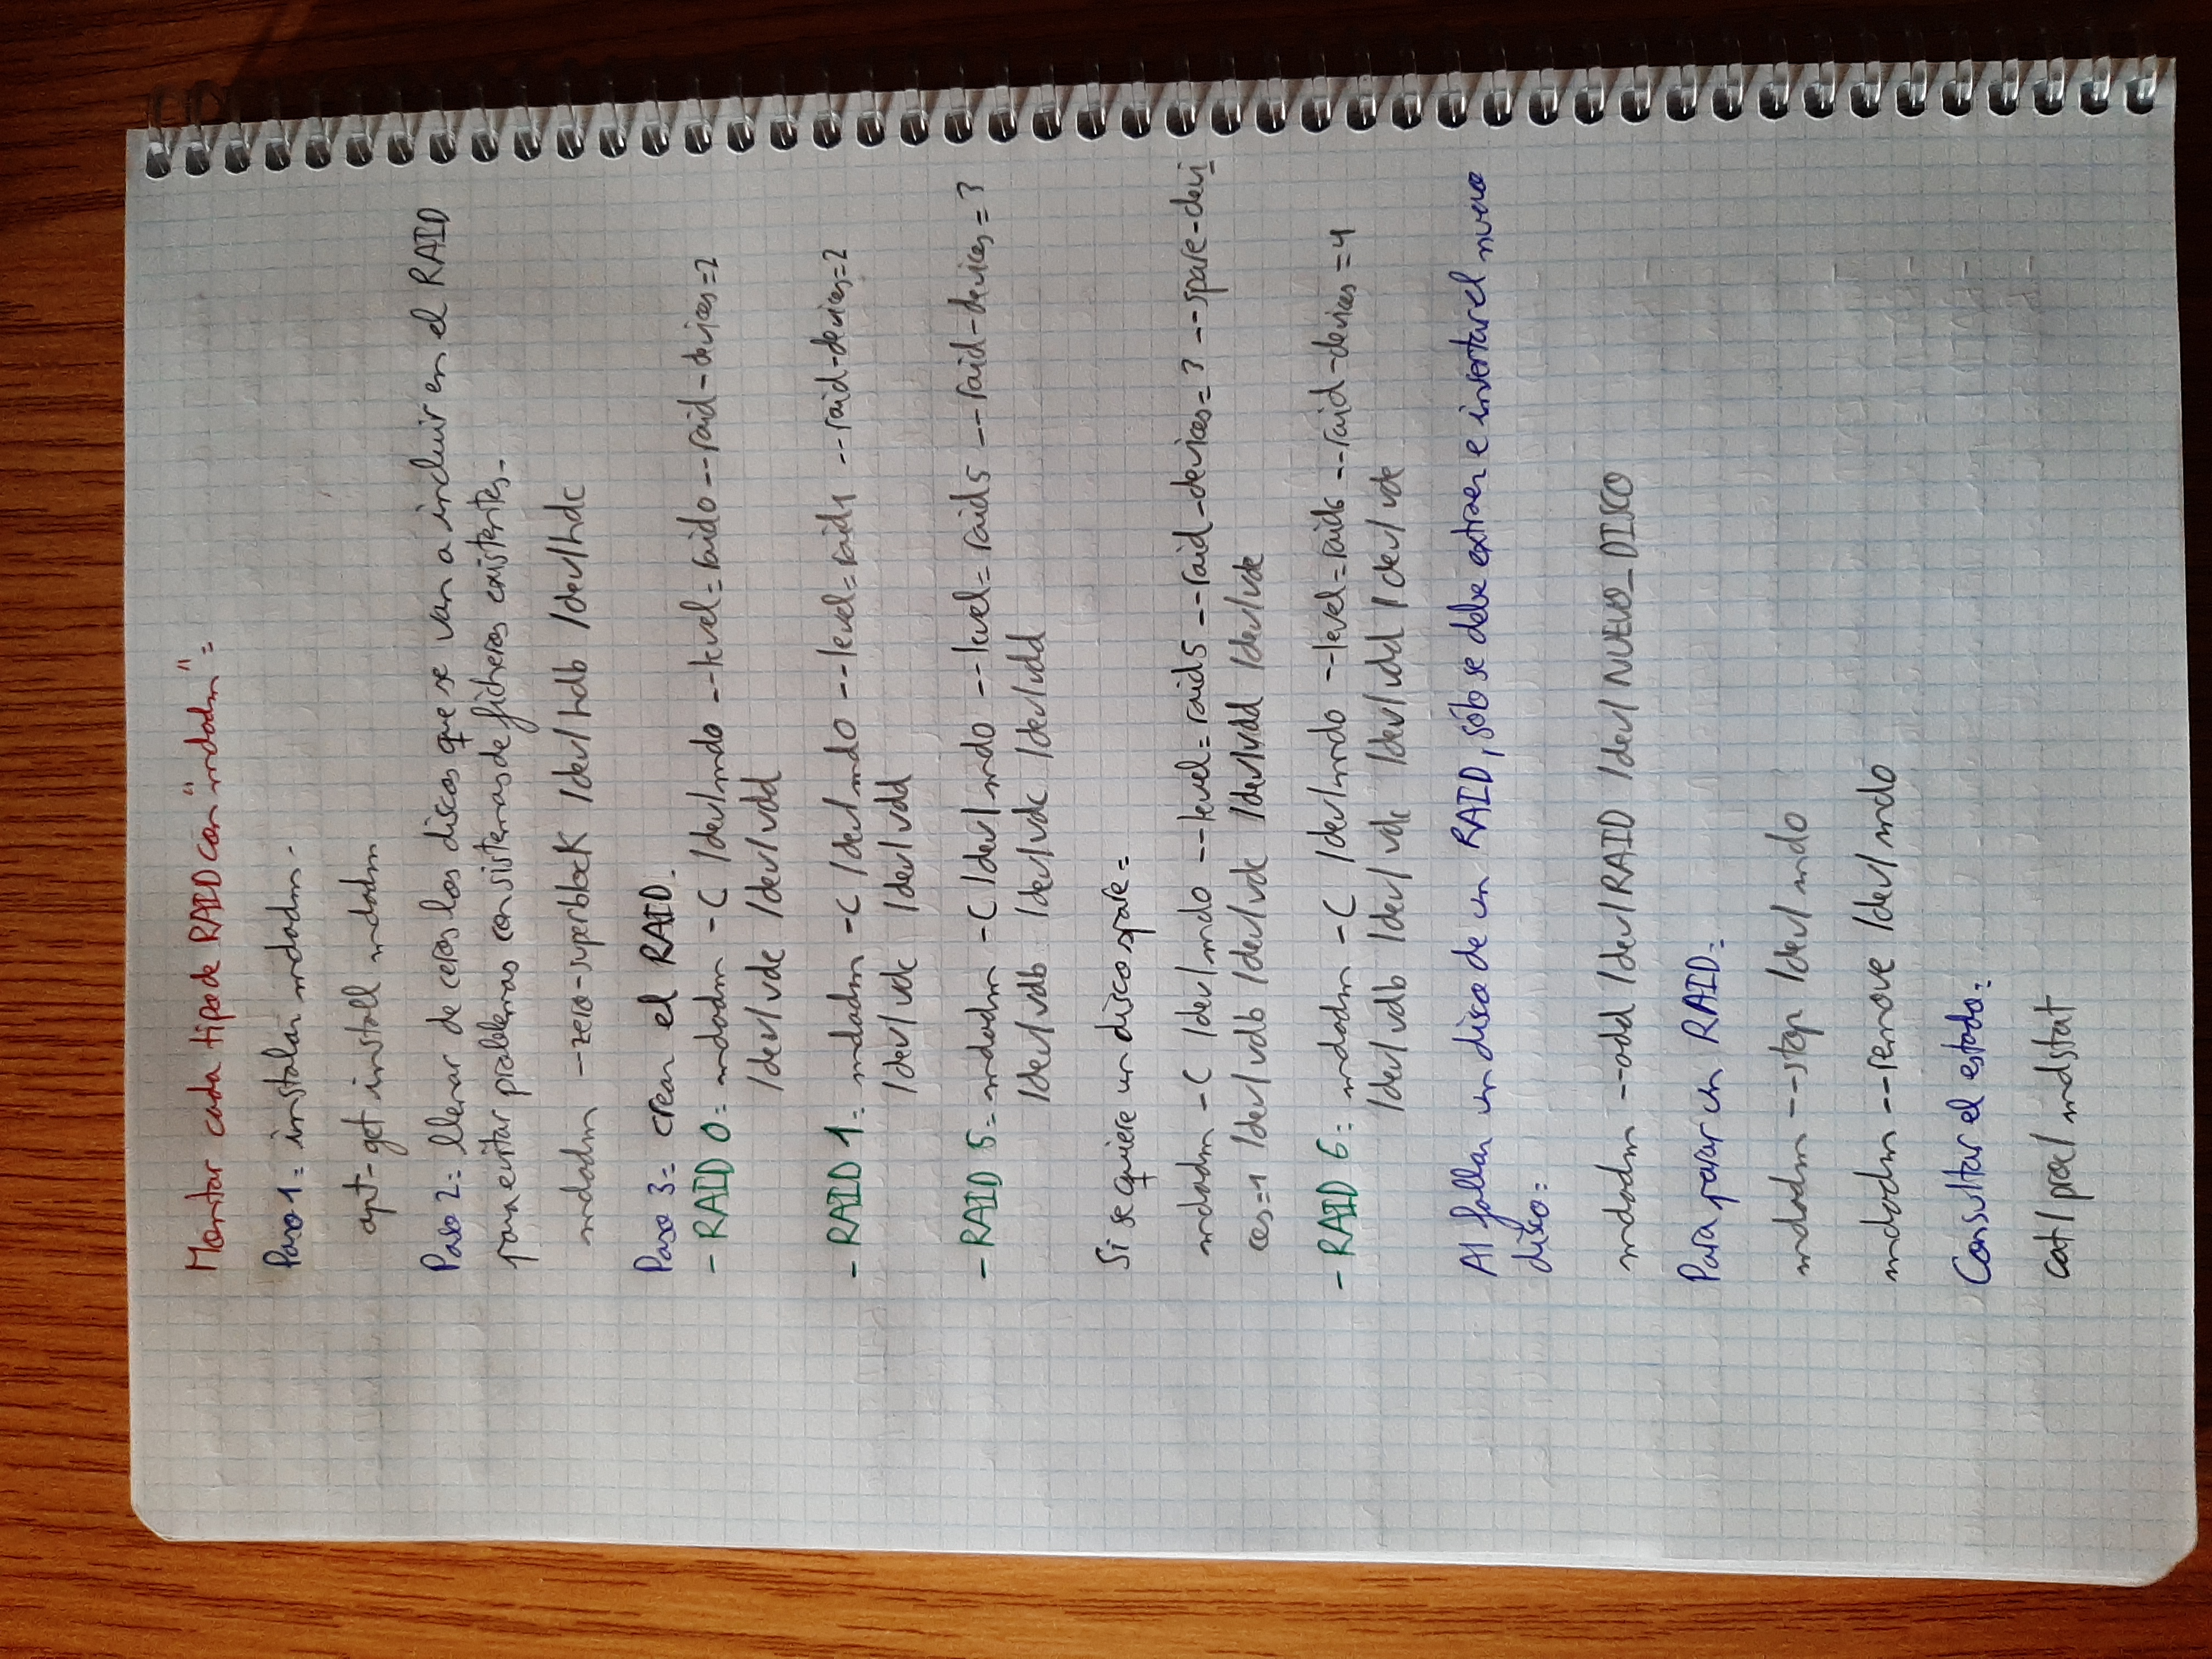 Montar cada tipo de RAID con "mdadm":
Paso 1: instalar mdadm.
apt-get install mdadm
Paso 2: llenar de ceros los discos que se van a incluir en el RAID
para evitar problemas con sistemas de ficheros existentes.
mdadm --zero-superblock /dev/hdb /dev/hdc
Paso 3: crear el RAID.
- RAID 0: mdadm -C /dev/md0 --level=raid0 --raid-devices=2
/dev/vdc /dev/vdd
- RAID 1: mdadm -C /dev/md0 --level=raid1 --raid-devices=2
/dev/vdc /dev/vdd
- RAID 5: mdadm -C /dev/md0 --level=raid5 --raid-devices=3
/dev/vdb /dev/vdc /dev/vdd
Si se quiere un disco spare:
mdadm -C /dev/md0 --level=raid5 --raid-devices=3 --spare-devi
ces=1 /dev/vdb /dev/vdc /dev/vdd /dev/vde
- RAID 6: mdadm -C /dev/md0 --level=raid6 --raid-devices=4
/dev/vdb /dev/vdc /dev/vdd /dev/vde
Al fallar un disco de un RAID, sólo se debe extraer e insertar el nuevo
disco:
mdadm --add /dev/RAID /dev/NUEVO_DISCO
Para parar un RAID:
mdadm --stop /dev/md0
mdadm --remove /dev/md0
Consultar el estado:
cat /proc/mdstat